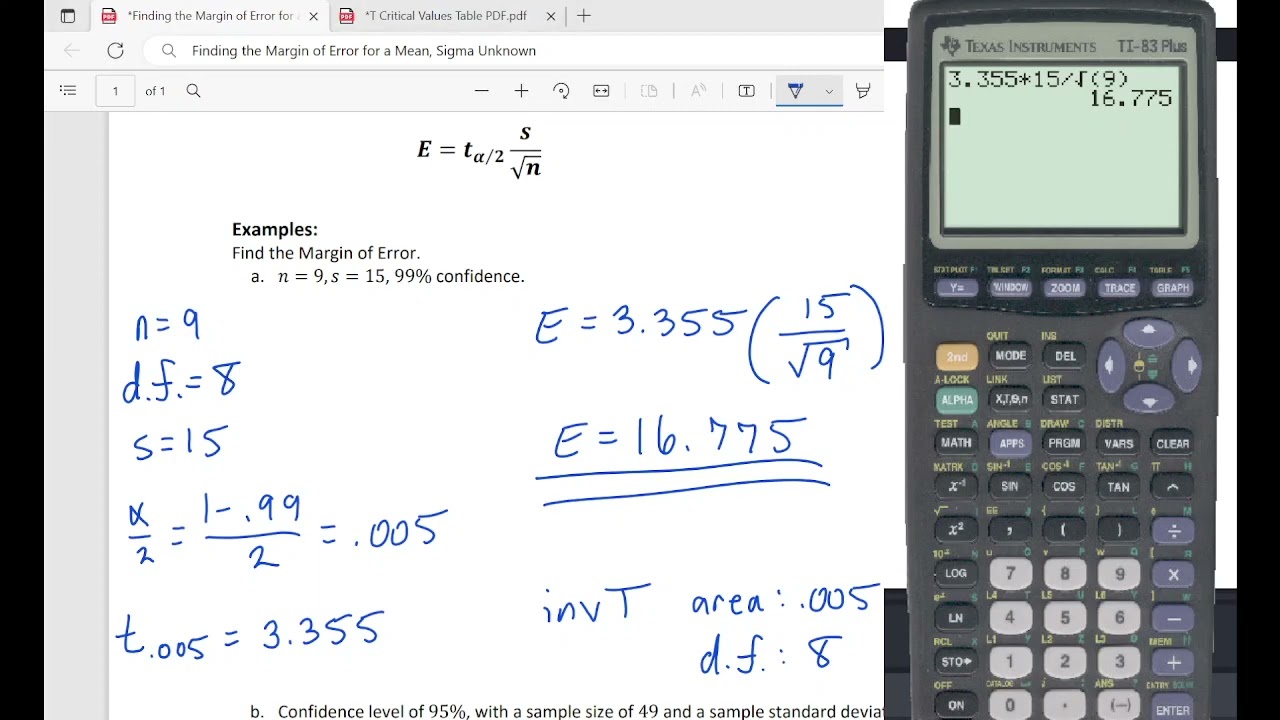 *Finding the Margin of Error for a
*T Critical Values Table PDF.pdf
Finding the Margin of Error for a Mean, Sigma Unknown
1 of 1
E = t_{α/2} s/√n
Examples:
Find the Margin of Error.
a. n = 9, s = 15, 99% confidence.
n = 9
d.f. = 8
s = 15
α/2 = 1 - .99/2 = .005
t.005 = 3.355
E = 3.355 (15/√9)
E = 16.775
invT area: .005
d.f.: 8
b. Confidence level of 95%, with a sample size of 49 and a sample standard devia
TEXAS INSTRUMENTS TI-83 Plus
3.355*15/√(9)
16.775
STAT PLOT F1 TBLSET F2 FORMAT F3 CALC F4 TABLE F5
Y= WINDOW ZOOM TRACE GRAPH
QUIT INS
2nd MODE DEL
A-LOCK LINK LIST
ALPHA X,T,θ,n STAT
TEST A ANGLE B DRAW C DISTR
MATH APPS PRGM VARS CLEAR
MATRX D SIN⁻¹ E COS⁻¹ F TAN⁻¹ G π H
x⁻¹ SIN COS TAN ^
√ I EE J { K } L e M
x² , ( ) ÷
10ˣ N u O v P w Q [ R
LOG 7 8 9 ×
eˣ S L4 T L5 U L6 V ] W
LN 4 5 6 −
RCL X L1 Y L2 Z L3 θ MEM "
STO▸ 1 2 3 +
OFF CATALOG i : ANS ? ENTRY SOLVE
ON 0 . (−) ENTER